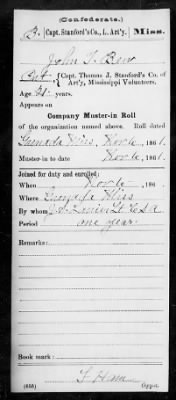 (Confederate.)
B. | Capt. Stanford's Co., L. Art'y. | Miss.
John T.
Capt. Thomas J. Stanford's Co. of
Art'y, Mississippi Volunteers.
Age years.
Appears on
Company Muster-in Roll
of the organization named above. Roll dated
Grenada Miss, Nov 6, 1861.
Muster-in to date Nov 6, 1861.
Joined for duty and enrolled:
When Nov 6, 186
Where Grenada Miss
By whom Lt C.S.A
Period one year.
Remarks:
Book mark:
(658)
Copyist.